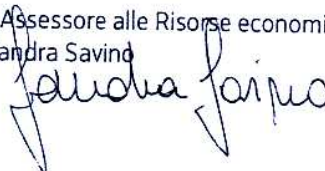 Assessore alle Risorse economi
andra Savino
Sandra Savino